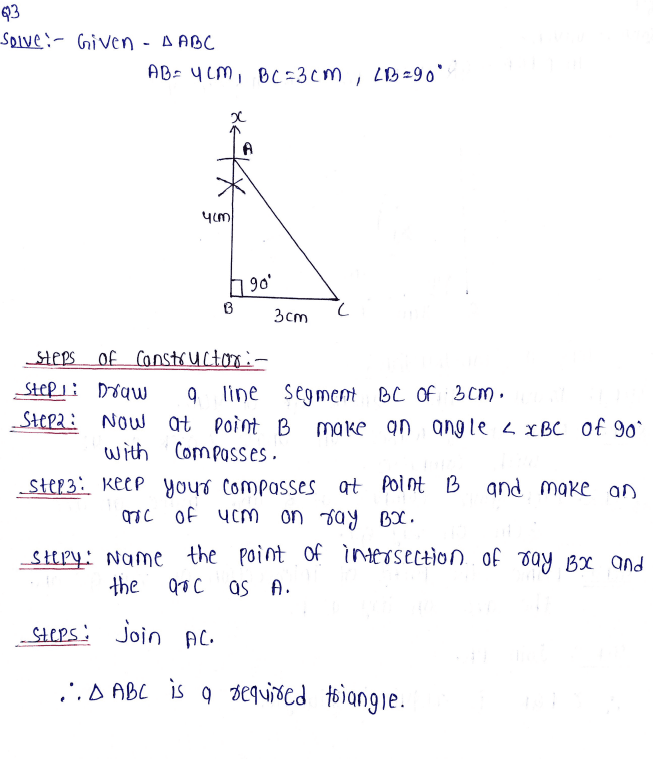 Q3
Solve:- Given - △ABC
AB= 4cm, BC=3cm, ∠B=90°
x
A
4cm
90°
B
C
3cm
Steps of Constructor:-
Step1: Draw a line segment BC of 3cm.
Step2: Now at point B make an angle ∠xBC of 90°
with compasses.
Step3: Keep your compasses at point B and make an
arc of 4cm on ray Bx.
Step4: Name the point of intersection of ray Bx and
the arc as A.
Step5: Join AC.
∴ △ABC is a required triangle.